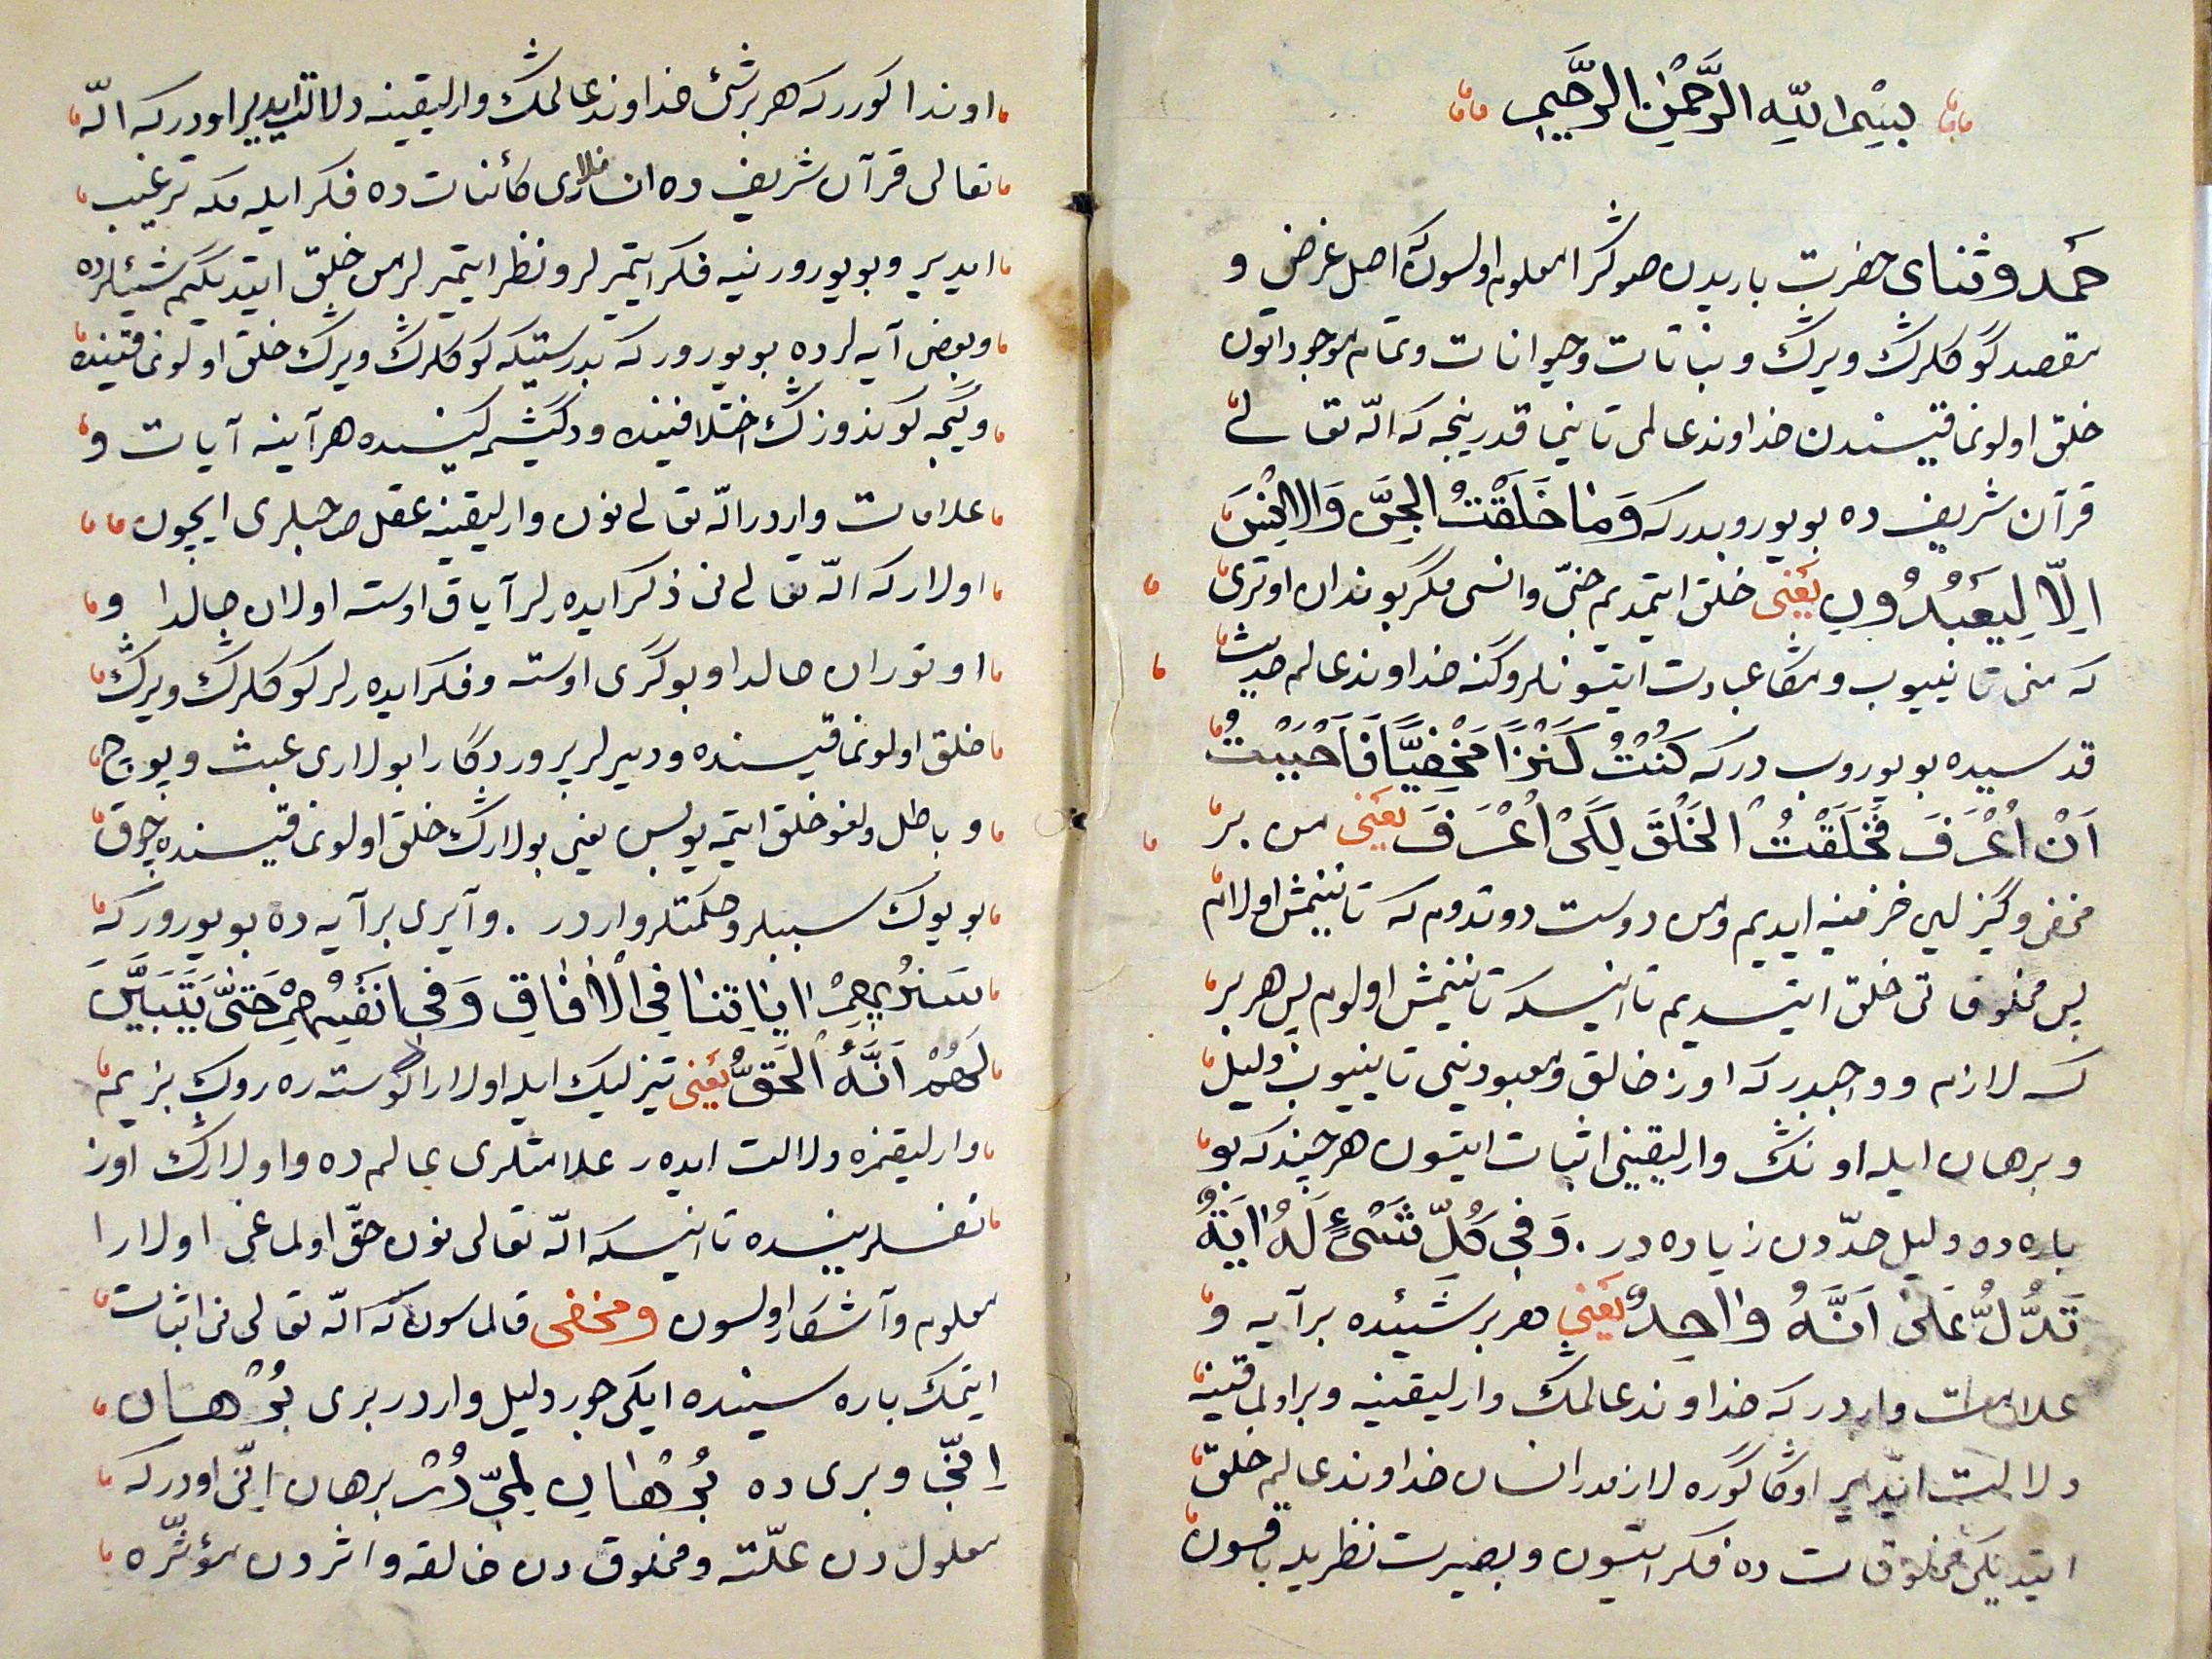 بِسْمِ اللّٰهِ الرَّحْمٰنِ الرَّحٖيمِ
حَمد و ثنای حضرت باریدن صوڭرا معلوم اولسون که اصل غرض و
مقصد گوگلرڭ ویرڭ و نباتات وحیوانات وتمام موجوداتون
خلق اولونماقیسندن خداوند عالمی تانیماقدر نیجه که الله تعالی
قرآن شریف ده بویوروبدرکه وَمٰا خَلَقْتُ الْجِنَّ وَالْاِنْسَ
اِلّا لِیَعْبُدُونِ یَعْنی خلق ایتمدیم جنّ وانسی مگر بوندان اوتری
که منی تانییوب ومڭا عبادت ایتسونلر وگنه خداوند عالم حدیث
قدسیده بویوروب درکه کُنْتُ کَنْزاً مَخْفِیّاً فَاَحْبَبْتُ
اَنْ اُعْرَفَ فَخَلَقْتُ الْخَلْقَ لِکَیْ اُعْرَفَ یَعْنی من بر
مخفی وگیزلین خزینه ایدیم ومن دوست دوتدوم که تانینمش اولام
پس مخلوقاتی خلق ایتدیم تا اینکه تانینمش اولوم پس هر بر
کسه لازم و واجبدرکه اوز خالق ومعبودینی تانییوب دلیل
و برهان ایله اونڭ وارلیقینی اثبات ایتسون هرچند که بو
باره ده دلیل حدّدن زیاده در . وَفی کُلِّ شَیْءٍ لَهُ اٰیَةٌ
تَدُلُّ عَلیٰ اَنَّهُ وٰاحِدٌ یَعْنی هر بر شیئده بر آیه و
علامت واردرکه خداوند عالمڭ وارلیقینه وبر اولماقینه
دلالت ایدیر اوڭا گوره لازمدر انسان خداوند عالم خلق
ایتدیکی مخلوقات ده فکر ایتسون وبصیرت نظریله باقسون
اوندا گوررکه هر بر شئ خداوند عالمڭ وارلیقینه دلالت ایدیر اودرکه الله
تعالی قرآن شریف ده انسانلاری کائنات ده فکر ایله مکه ترغیب
ایدیر وبویورور نیه فکر ایتمیرلر و نظر ایتمیرلر من خلق ایتدیگیم شیئلرده
وبعض آیه لرده بویورور که بدرستیکه گوگلرڭ ویرڭ خلق اولونماقینده
وگیجه گوندوزڭ اختلافینده ودگیشمه گینده هرآینه آیات و
علامات واردر الله تعالی نون وارلیقینه عقل صاحبلری ایچون
اولار که الله تعالی نی ذکر ایده رلر آیاق اوسته اولان حالدا و
اوتوران حالدا و بوگری اوسته وفکر ایده رلر گوگلرڭ ویرڭ
خلق اولونماقیسنده ودییرلر پروردگارا بولاری عبث وپوچ
و باطل ولغو خلق ایتمه یوبسن یعنی بولارڭ خلق اولونماقیسنده چوق
بویوک سببلر وحکمتلر واردر . وآیری بر آیه ده بویورور که
سَنُریهِمْ اٰیٰاتِنٰا فِی الْاٰفٰاقِ وَفی اَنْفُسِهِمْ حَتّیٰ یَتَبَیَّنَ
لَهُمْ اَنَّهُ الْحَقُّ یَعْنی تیزلیک ایله اولارا گوسته ره روک بزیم
وارلیقمزه دلالت ایده ر علامتلری عالم ده و اولارڭ اوز
نفسلرینده تا اینکه الله تعالی نون حقّ اولماغی اولارا
معلوم وآشکار اولسون ومخفی قالماسون که الله تعالی نی اثبات
ایتمک باره سینده ایکی جور دلیل واردر بری بُرْهان
اِنّی وبری ده بُرْهٰانِ لِمّی دُر برهان اِنّی اودرکه
معلول دن علّته ومخلوق دن خالقه واثردن مؤثّره